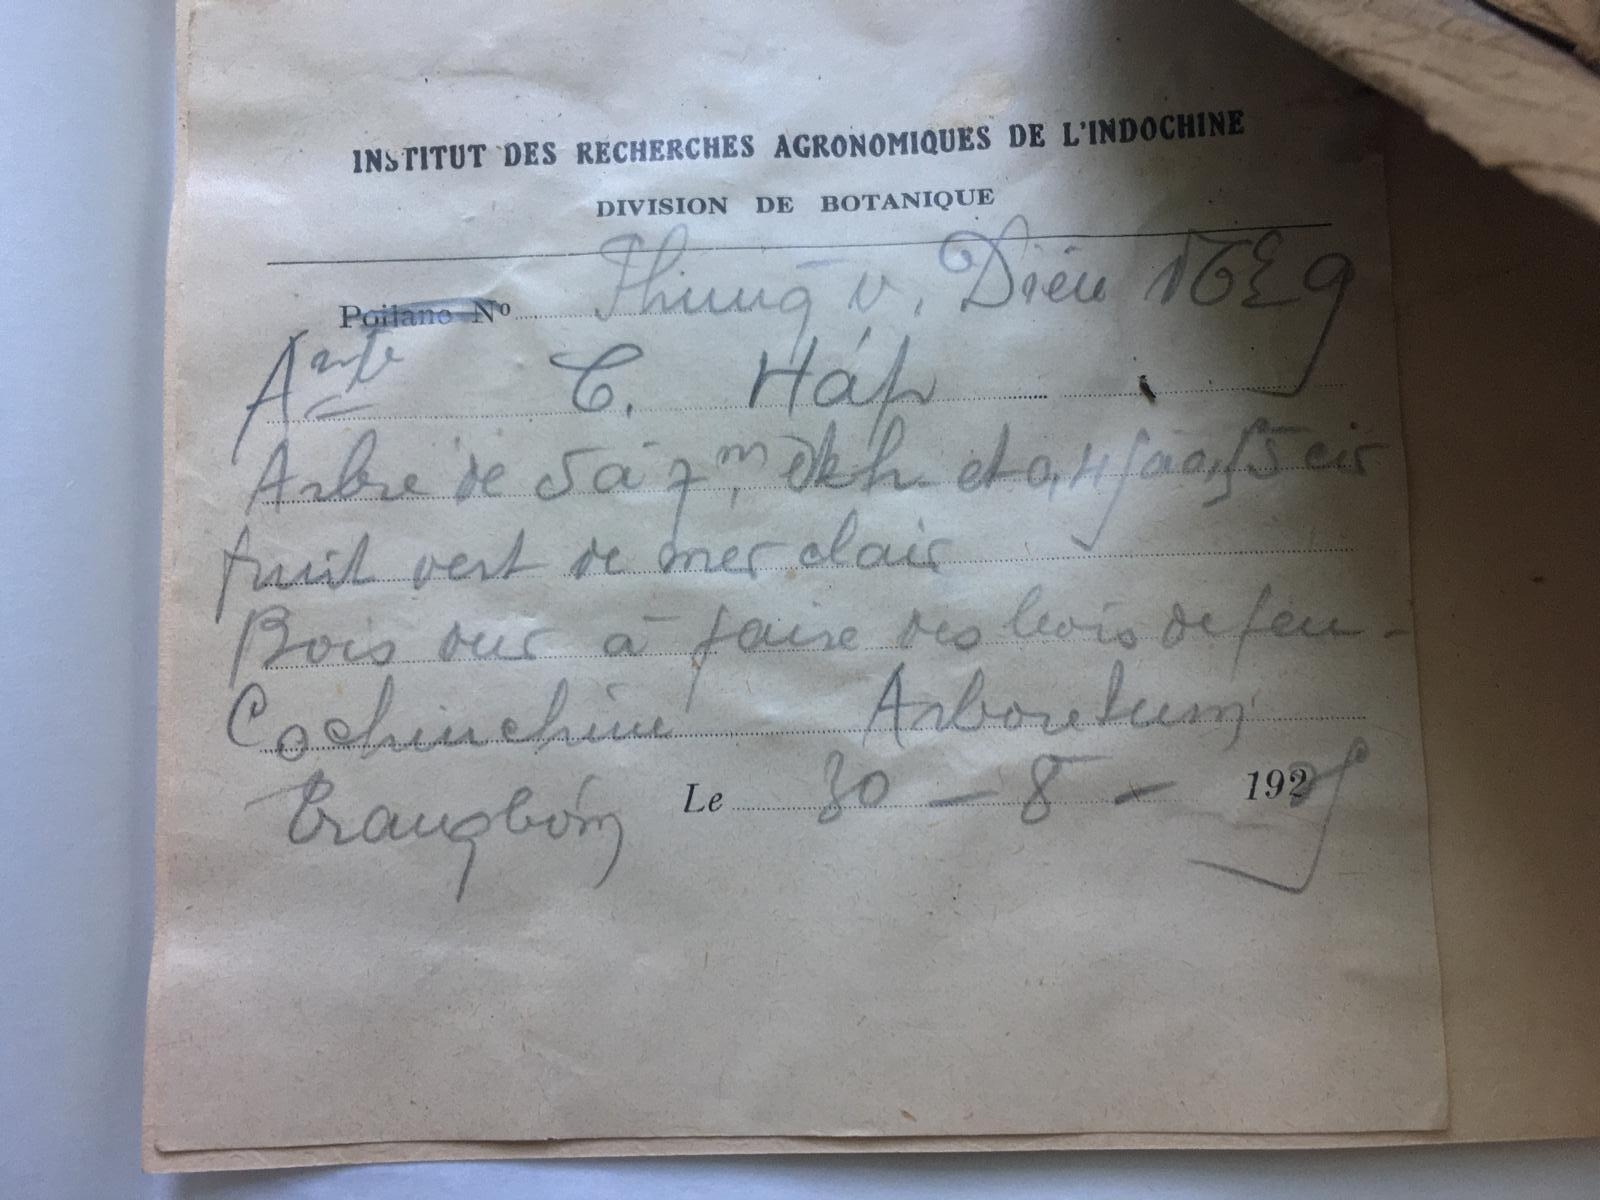 INSTITUT DES RECHERCHES AGRONOMIQUES DE L'INDOCHINE
DIVISION DE BOTANIQUE
Poilane Nº Phung v. Diêu
C. Háp
Arbre de 5 à 7 m, de h. et cir
fruit vert de mer clair
Bois dur à faire des bois de feu -
Cochinchine Arboretum
Trangbóm Le 30 - 8 - 192